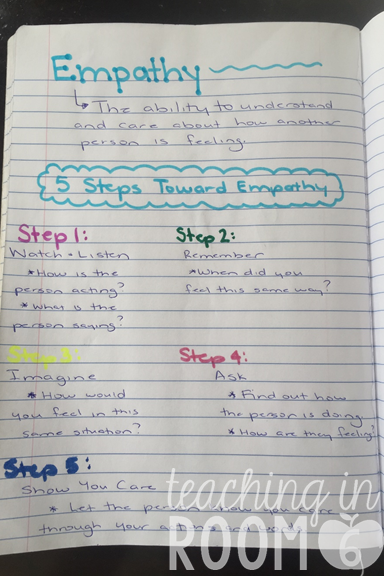 Empathy
↳ The ability to understand
and care about how another
person is feeling.
5 Steps Toward Empathy
Step 1:
Watch • Listen
* How is the
person acting?
* What is the
person saying?
Step 2:
Remember
* When did you
feel this same way?
Step 3:
Imagine
* How would
you feel in this
same situation?
Step 4:
Ask
* Find out how
the person is doing.
* How are they feeling?
Step 5:
Show You Care
* Let the person know you care
through your
teaching in
ROOM 6